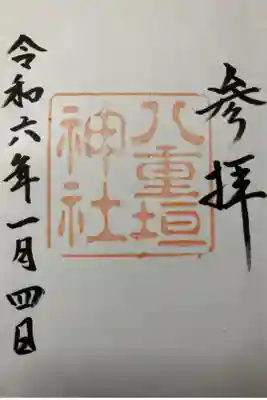 参拝
八重垣
神社
令和六年一月四日